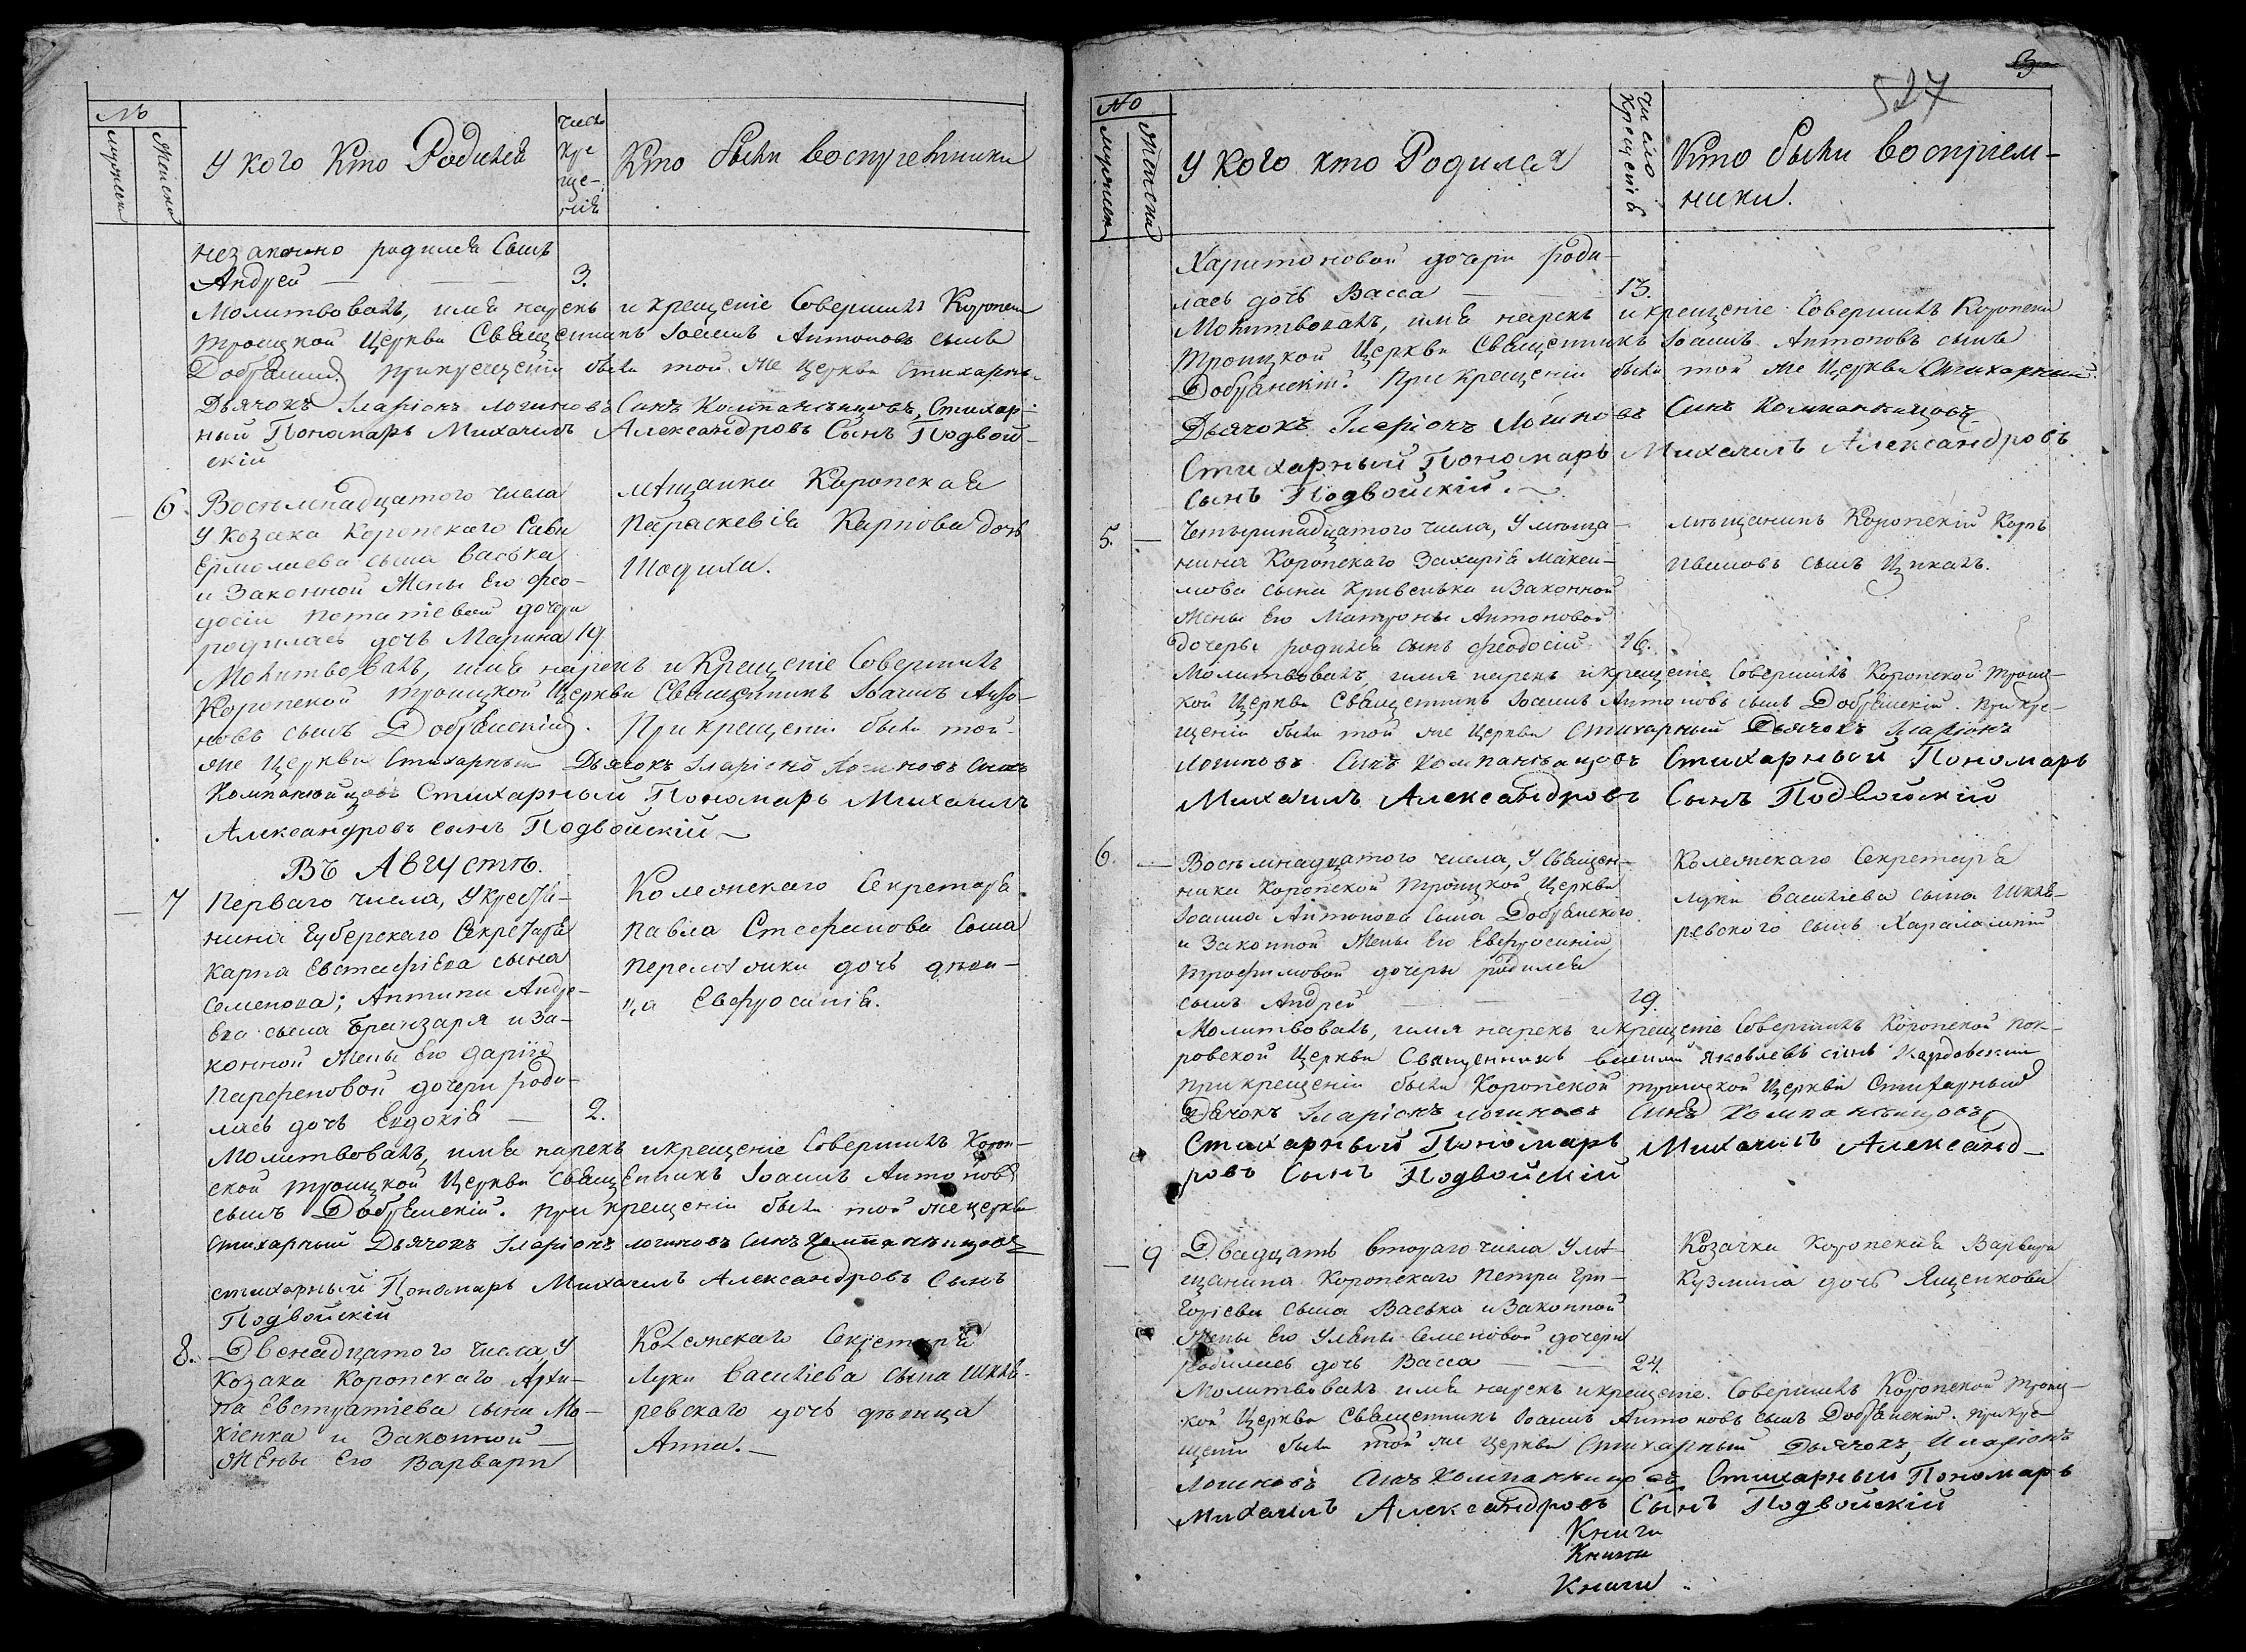 №
мужеск
женска
У кого Кто Родился
число крещенія
Кто были воспріемники
незаконно родился Сынъ
Андрей — 3.
Молитвовалъ, имя нарекъ и крещеніе Совершилъ Короп
Троицкой Церкви Священникъ Іоаннъ Антоновъ сынъ
Добрянскій при крещеніи были той же Церкви Стихарны
Дьячокъ Іларіонъ Логиновъ Синъ Компанѣицовъ, Стихар-
ный Пономарь Михаилъ Александровъ Сынъ Подвой-
скій
6. Восемнадцатого числа
у козака Коропскаго Сави
Ермолаева сына Васька
и Законной Жены Его Фео-
досіи дочери
родилась дочь Марина 19
мѣщанка Коропская
Параскевія Карпова дочь

Молитвовалъ, имя нарекъ и Крещеніе Совершилъ
Коропской Троицкой Церкви Священникъ Іоаннъ Анто-
новъ сынъ Добрянскій. При крещеніи были той-
же Церкви Стихарный Дьячокъ Іларіонъ Логиновъ Синъ
Компанѣйцовъ Стихарный Пономарь Михаилъ
Александровъ сынъ Подвойскій
Въ Августѣ.
7 Перваго числа, У крестя-
нина Губерскаго Секретаря
Карпа Евстафіева сына
Семенова; Антипи Андре-
ева сына Бринзаря и За-
конной Жены Его Даріи
Парфеновой дочери роди-
лась дочь Евдокія — 2.
Колежскаго Секретаря
Павла Стефанова Сына
дочь дѣви-
ца Евфросинія.
Молитвовалъ, имя нарекъ и крещеніе Совершилъ Короп-
ской Троицкой Церкви Священникъ Іоаннъ Антоновъ
сынъ Добрянскій. При крещеніи были той же церкви
Стихарный Дьячокъ Іларіонъ Логиновъ Синъ Компанѣицовъ
стихарный Пономарь Михаилъ Александровъ Сынъ
Подвойскій
8. Двенадцатого числа У
Козака Коропскаго Архи-
па Евстратіева сына Мо-
кіенка и Законной —
Жены Его Варвари
Колежскаго Секретаря
Луки Василіева сына Шкля-
ревскаго дочь дѣвица
Анна. —
3
527
№
мужеска
женска
У кого кто Родился
Число Крещенія
Кто были воспріем-
ники.
Харитоновой дочери роди-
лась дочь Васса — 13.
Молитвовалъ, имя нарекъ и крещеніе Совершилъ Коропской
Троицкой Церкви Священникъ Іоаннъ Антоновъ сынъ
Добрянскій. При крещеніи были той же Церкви Стихарный
Дьячокъ Іларіонъ Логиновъ Синъ Компанѣицовъ
Стихарный Пономарь Михаилъ Александровъ
Сынъ Подвойскій.
5. — Четырнадцатого числа, У мѣща-
нина Коропскаго Захарія Макси-
мова сына Кривенька и Законной
Жены Его Матроны Антоновой
дочеры родился сынъ Феодосій 16.
мѣщанинъ Коропскій Карпъ
Ивановъ сынъ Цикалъ.
Молитвовалъ имя нарекъ и крещеніе Совершилъ Коропской Троиц-
кой Церкви Священникъ Іоаннъ Антоновъ сынъ Добрянскій. При кре-
щеніи были той же Церкви Стихарный Дьячокъ Іларіонъ
Логиновъ Синъ Компанѣицовъ Стихарный Пономарь
Михаилъ Александровъ Сынъ Подвойскій
6. — Восемнадцатого числа, У Священ-
ника Коропской Троицкой Церкви
Іоанна Антонова Сына Добрянского
и Законной Жены Его Евфросиніи
Трофимовой дочеры родился
сынъ Андрей — 19.
Колежскаго Секретаря
Луки Василіева сына Шкля-
ревского сынъ Харалампій
Молитвовалъ, имя нарекъ и крещеніе Совершилъ Коропской Пок-
ровской Церкви Священникъ Яковлевъ синъ
при крещеніи были Коропской Троицкой Церкви Стихарный
Дьячокъ Іларіонъ Логиновъ Синъ Компанѣицовъ
Стихарный Пономарь Михаилъ Александ-
ровъ Сынъ Подвойскій
— 9 Двадцать втораго числа У мѣ-
щанина Коропскаго Петра Гри-
горіева сына Васька и Законной
Жены Его Уляны Семеновой дочери
родилась дочь Васса — 24.
Козачка Коропская Варвара
Кузмина дочь Ященкова
Молитвовалъ имя нарекъ и крещеніе Совершилъ Коропской Троиц-
кой Церкви Священникъ Іоаннъ Антоновъ сынъ Добрянскій. При кре-
щеніи были той же Церкви Стихарный Дьячокъ Іларіонъ
Логиновъ Синъ Компанѣицовъ Стихарный Пономарь
Михаилъ Александровъ Сынъ Подвойскій
Книги
Книги
Книги